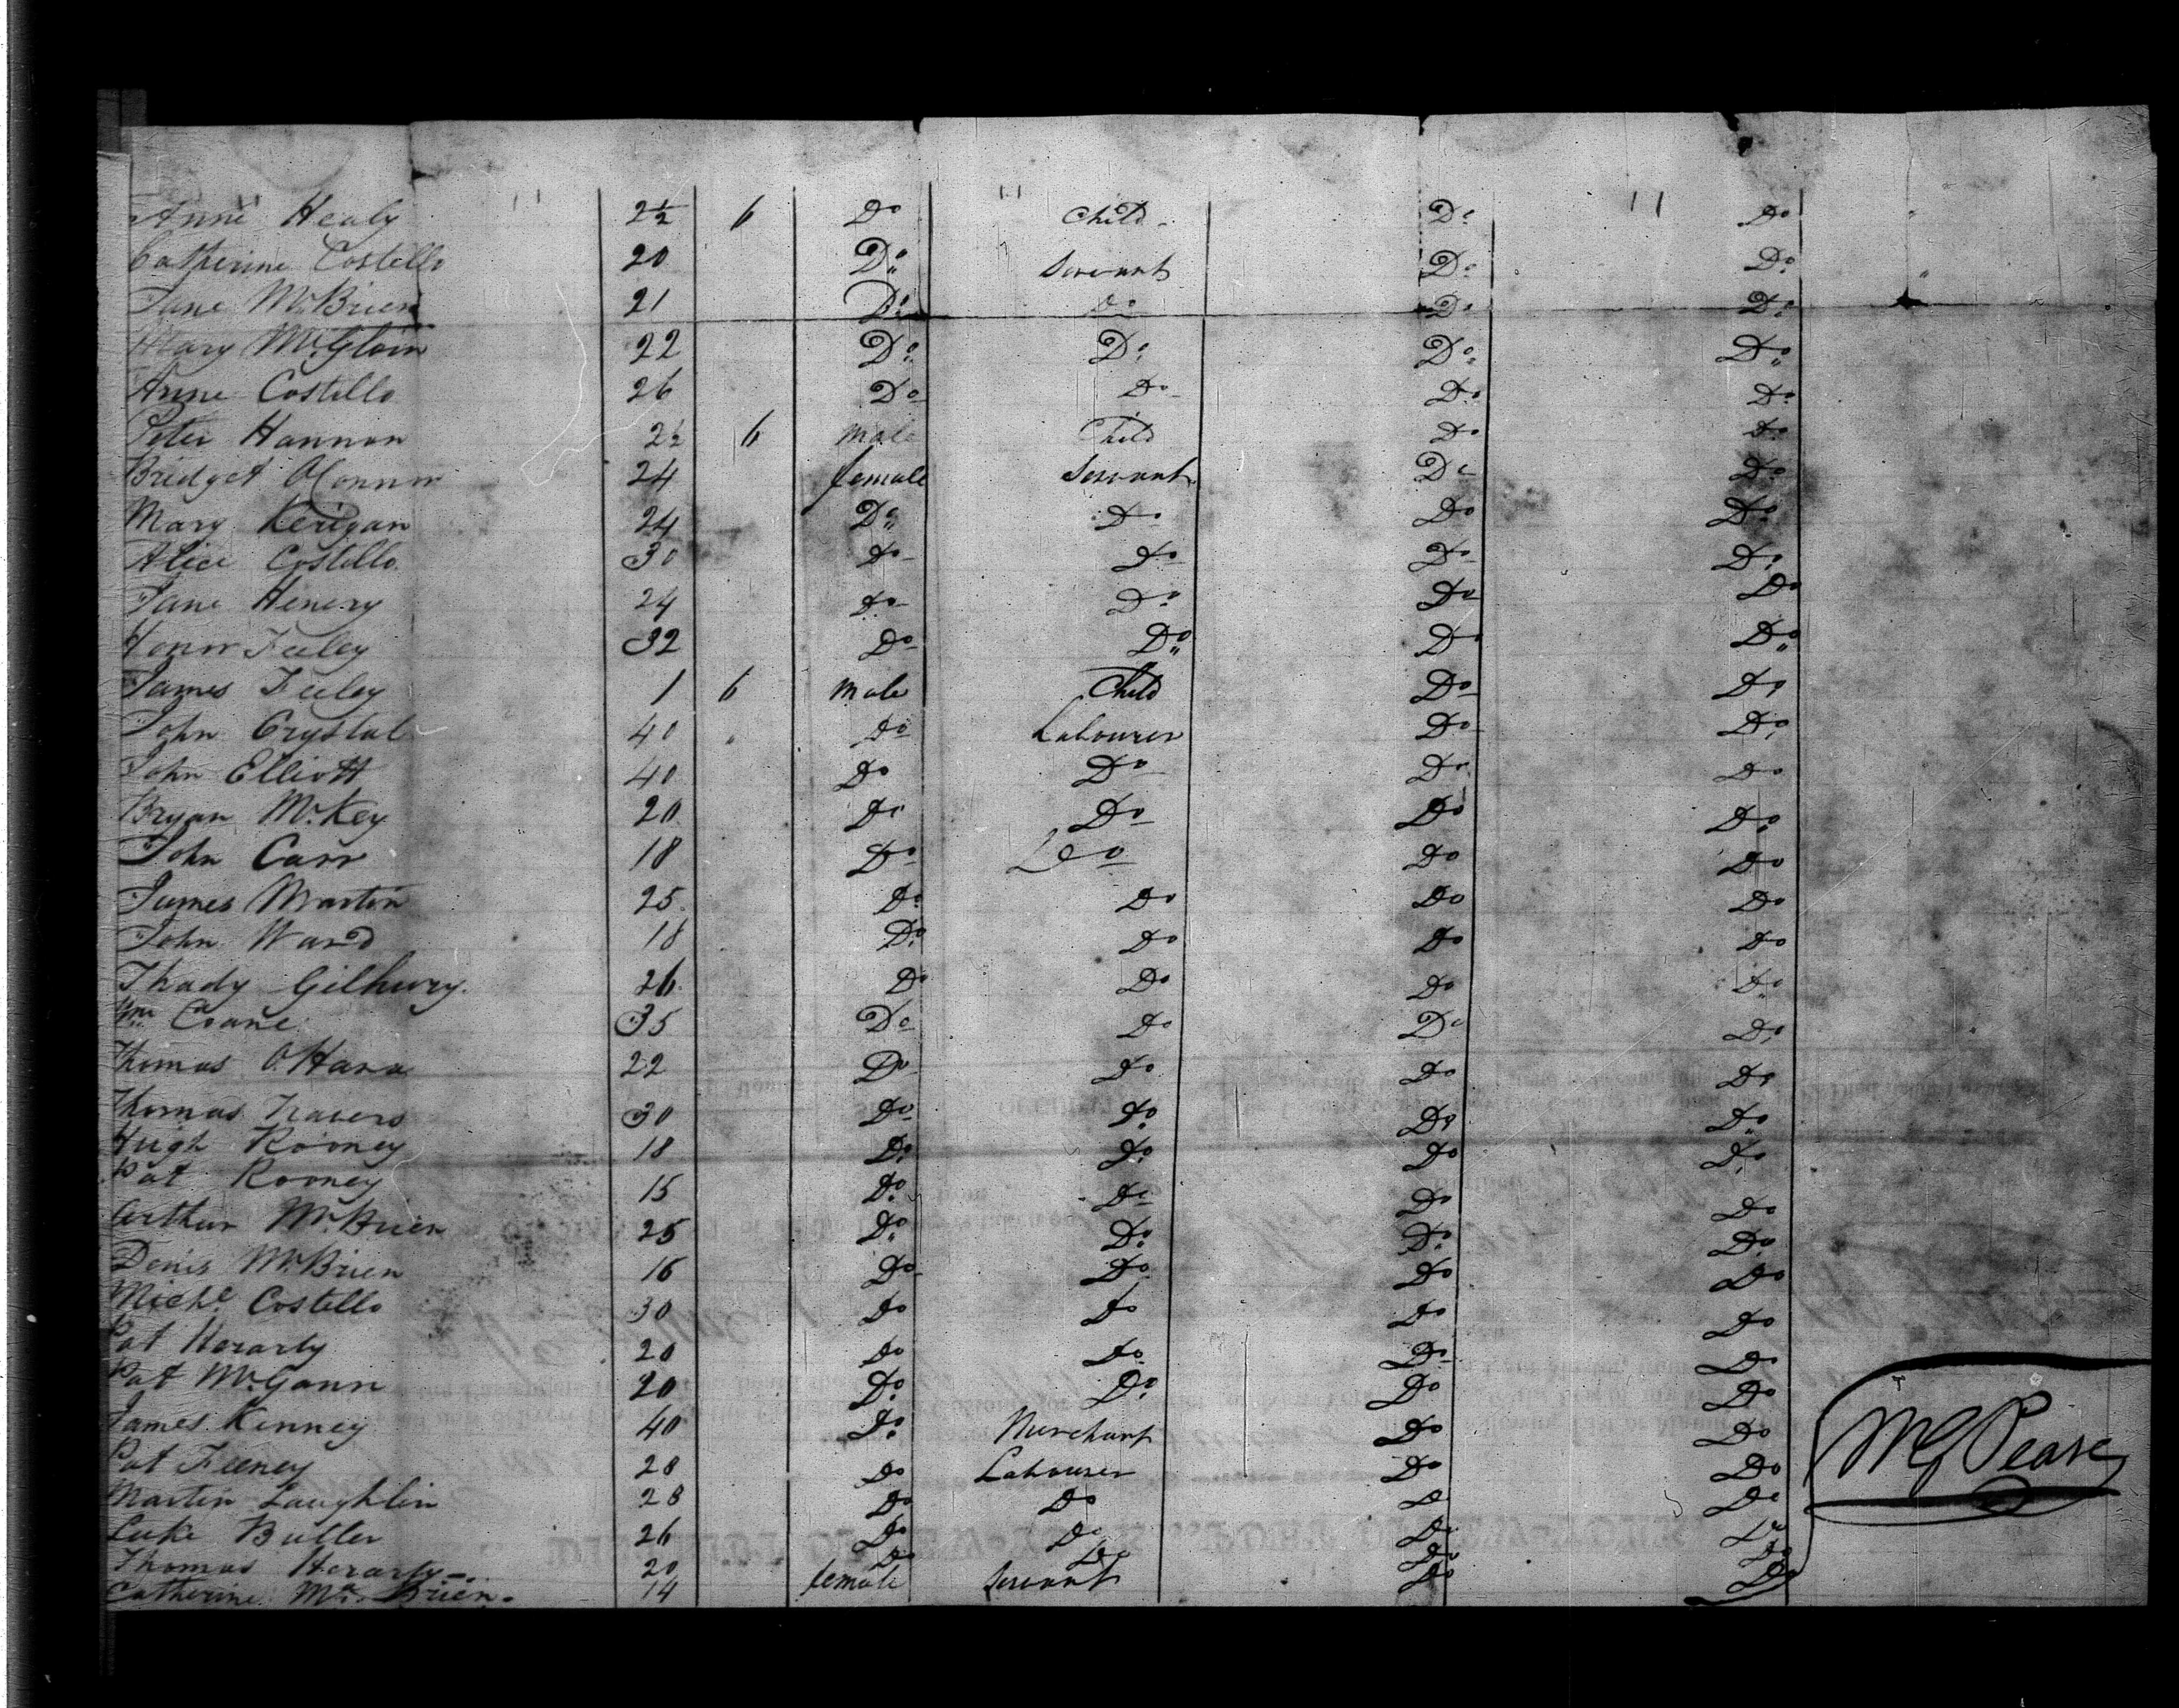 Anne Healy 2½ 6 Do Child Do Do
Catherine Costello 20 Do Servant Do Do
Jane McBrien 21 Do Do Do Do
Mary McGloin 22 Do Do Do Do
Anne Costello 26 Do Do Do Do
Peter Hannon 2½ 6 Male Child Do Do
Bridget OConnor 24 female Servant Do Do
Mary Kerigan 24 Do Do Do Do
Alice Costello 30 Do Do Do Do
Jane Henery 24 Do Do Do Do
Honor Feeley 32 Do Do Do Do
James Feeley 1 6 Male Child Do Do
John Crystal 40 Do Labourer Do Do
John Elliott 40 Do Do Do Do
Bryan McKey 20 Do Do Do Do
John Carr 18 Do Do Do Do
James Martin 25 Do Do Do Do
John Ward 18 Do Do Do Do
Thady Gilhewry 26 Do Do Do Do
Wm Coane 35 Do Do Do Do
Thomas O.Hara 22 Do Do Do Do
Thomas Travers 30 Do Do Do Do
Hugh Rooney 18 Do Do Do Do
Pat Rooney 15 Do Do Do Do
Arthur McBrien 25 Do Do Do Do
Denis McBrien 16 Do Do Do Do
Michl Costello 30 Do Do Do Do
Pat Herarty 20 Do Do Do Do
Pat McGann 20 Do Do Do Do
James Kenney 40 Do Merchant Do Do
Pat Feeney 28 Do Labourer Do Do
Martin Laughlin 28 Do Do Do Do
Luke Butler 26 Do Do Do Do
Thomas Herarty 20 Do Do Do Do
Catherine McBrien 14 female Servant Do Do
Pease